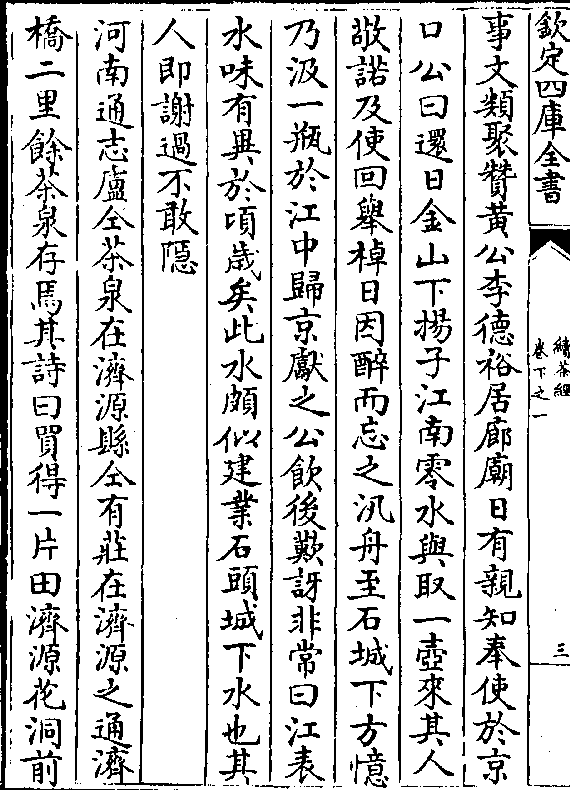 欽定四庫全書
續茶經
卷下之一
三
事文類聚贊黃公李德裕居廊廟日有親知奉使於京
口公曰還日金山下揚子江南零水與取一壺來其人
敬諾及使回舉棹日因醉而忘之汎舟至石城下方憶
乃汲一瓶於江中歸京獻之公飲後歎訝非常曰江表
水味有異於頃歲矣此水頗似建業石頭城下水也其
人即謝過不敢隱
河南通志盧仝茶泉在濟源縣仝有莊在濟源之通濟
橋二里餘茶泉存焉其詩曰買得一片田濟源花洞前